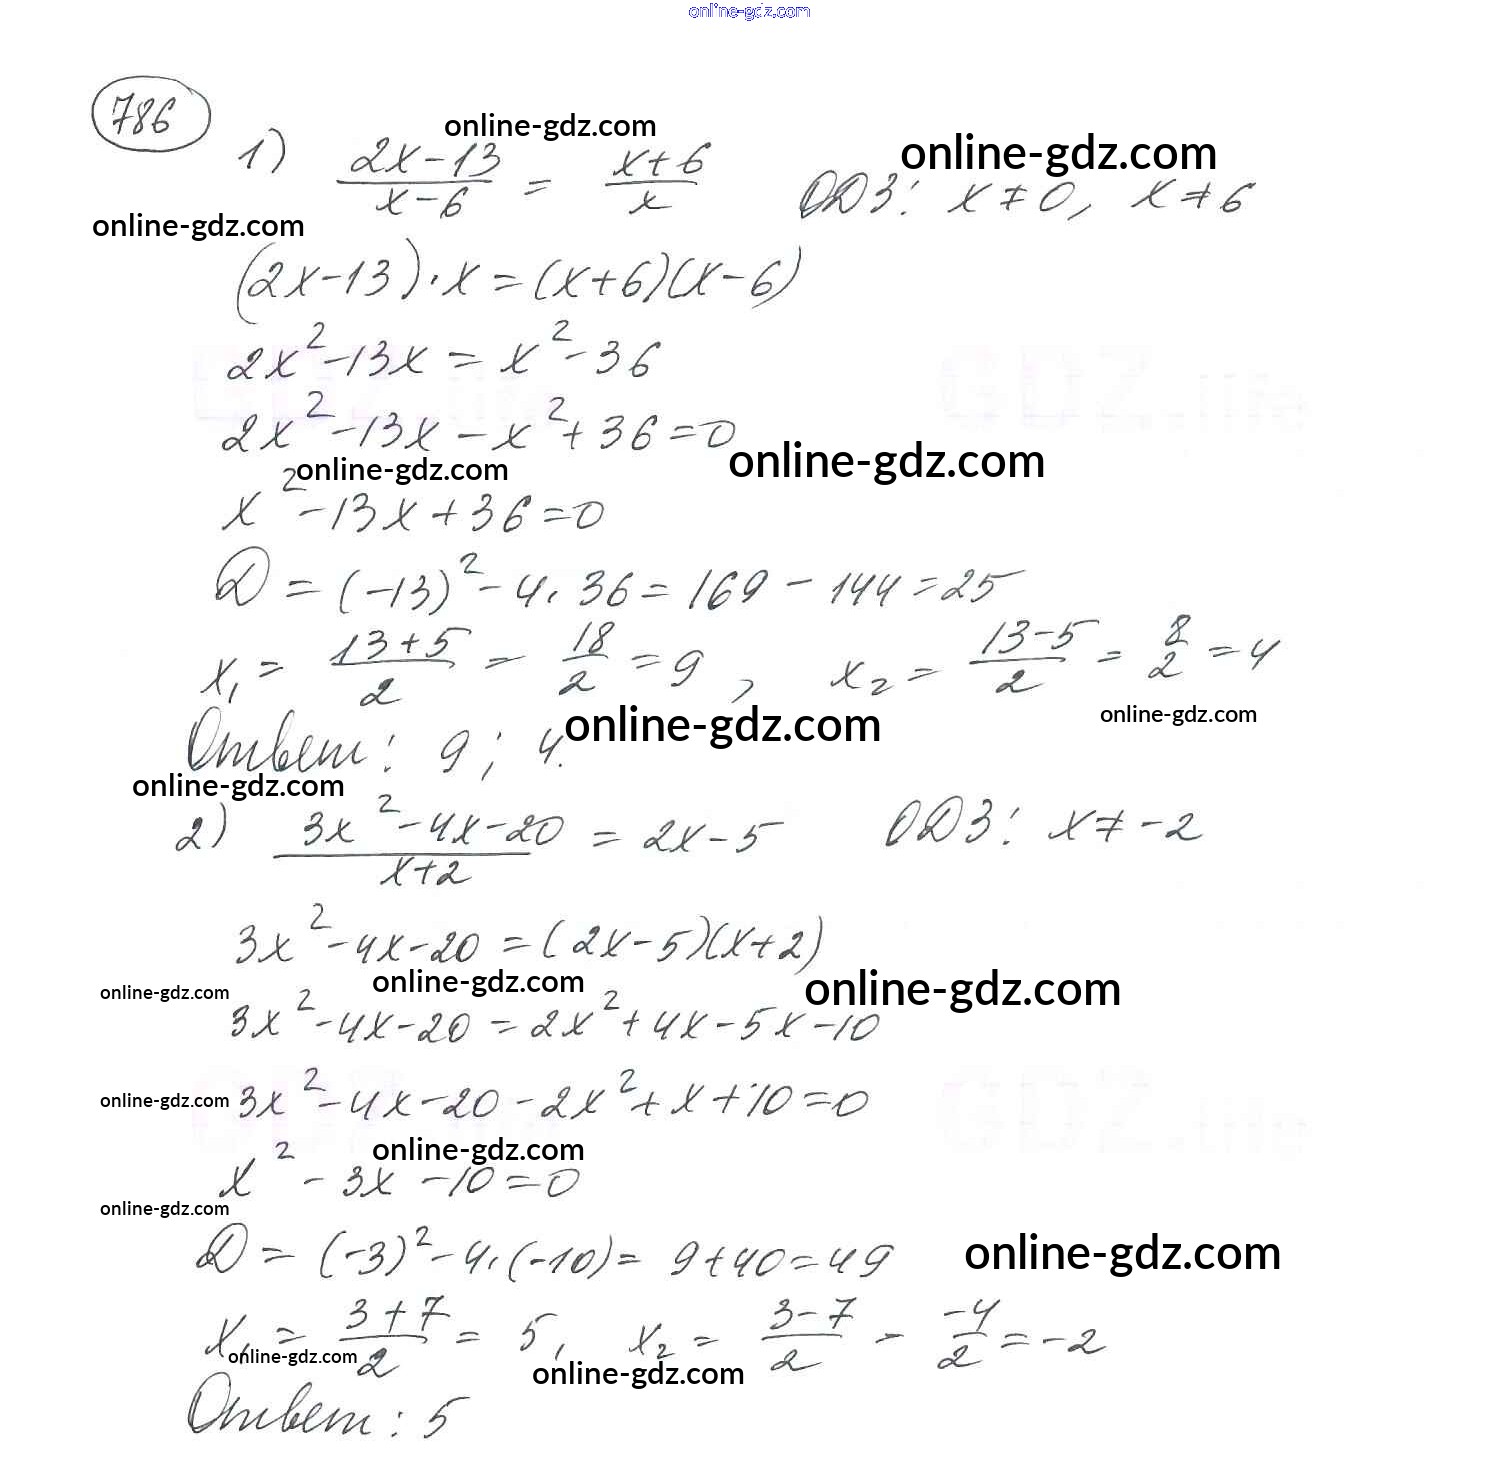 online-gdz.com
786
online-gdz.com
online-gdz.com
1) (2x-13)/(x-6) = (x+6)/x ОДЗ: x≠0, x≠6
online-gdz.com
(2x-13)·x=(x+6)(x-6)
2x²-13x=x²-36
2x²-13x-x²+36=0
online-gdz.com
online-gdz.com
x²-13x+36=0
D=(-13)²-4·36=169-144=25
x₁=(13+5)/2=18/2=9, x₂=(13-5)/2=8/2=4
online-gdz.com
online-gdz.com
Ответ: 9; 4.
online-gdz.com
2) (3x²-4x-20)/(x+2)=2x-5 ОДЗ: x≠-2
3x²-4x-20=(2x-5)(x+2)
online-gdz.com
online-gdz.com
online-gdz.com
3x²-4x-20=2x²+4x-5x-10
online-gdz.com
3x²-4x-20-2x²+x+10=0
online-gdz.com
x²-3x-10=0
online-gdz.com
D=(-3)²-4·(-10)=9+40=49
online-gdz.com
x₁=(3+7)/2=5, x₂=(3-7)/2=-4/2=-2
online-gdz.com
online-gdz.com
Ответ: 5